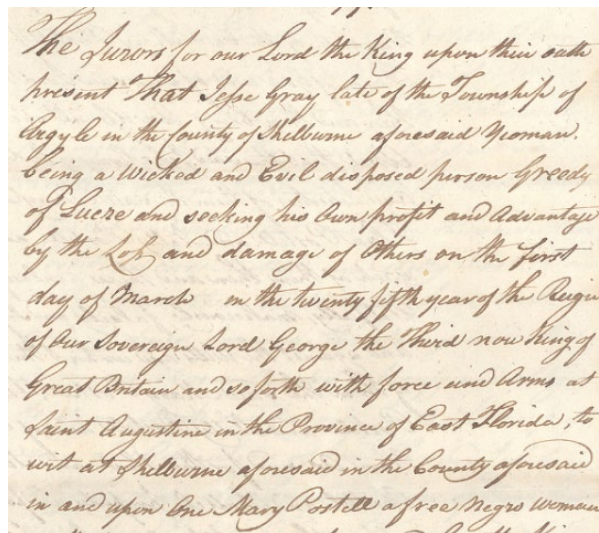 The Jurors for our Lord the King upon their oath
present That Jesse Gray late of the Township of
Argyle in the County of Shelburne aforesaid Yeoman.
being a Wicked and Evil disposed person Greedy
of Lucre and seeking his Own profit and Advantage
by the Loss and damage of Others on the first
day of March in the twenty fifth year of the Reign
of Our Sovereign Lord George the Third now King of
Great Britain and so forth with force and Arms at
Saint Augustine in the Province of East Florida, to
wit at Shelburne aforesaid in the County aforesaid
in and upon One Mary Postell a free Negro Woman